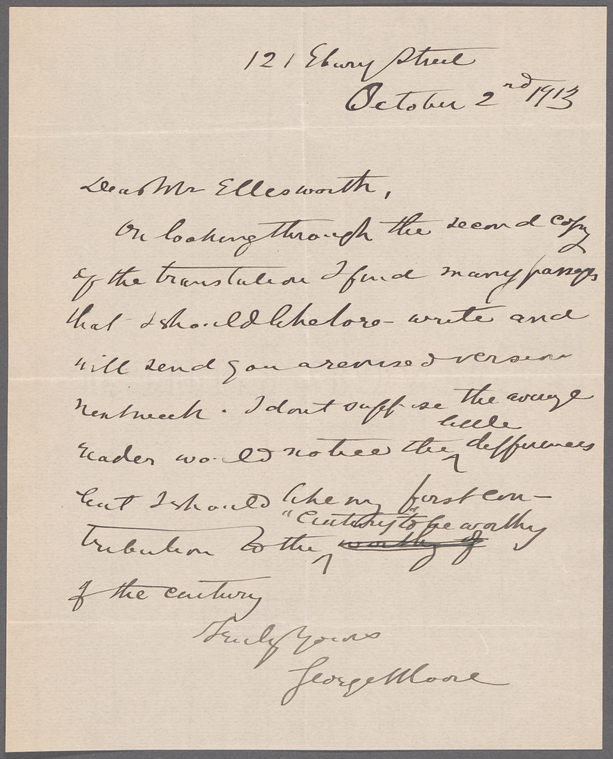 121 Ebury Street
October 2nd 1913
Dear Mr Ellesworth,
On looking through the second copy
of the translation I find many passages
that I should like to re-write and
will send you a revised version
next week. I dont suppose the average
little
reader would notice the differences
but I should like my first con-
"Century" to be worthy
tribution to the worthy of
of the century
Truly Yours
George Moore